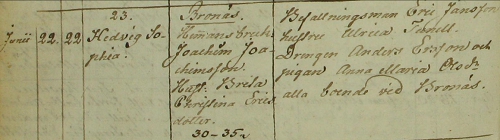 23. Bronäs.
Junii 22. 22 Hedvig So-
phia.
Hemmansbruk.
Joachim Joa-
chimsson.
Hust. Brita
Christina Erics
dotter.
30-35.
Befallningsman Eric Jansson
hustru Ulrica
Drengen Anders Ersson och
pigan Anna Maria Olsdr
alla boende ved Bronäs.